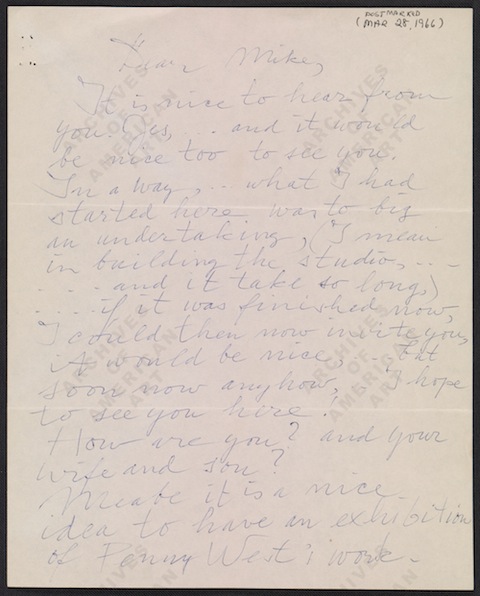 POSTMARKED
(MAR 28, 1966)
Dear Mike,
It is nice to hear from
you. Yes, ... and it would
be nice too to see you.
In a way, .. what I had
started here was to big
an undertaking, (I mean
in building the studio, ...
... and it take so long,)
....if it was finished now,
I could then now invite you,
it would be nice, .. but
soon now anyhow, I hope
to see you here.
How are you? and your
wife and son?
Meabe it is a nice
idea to have an exhibition
of Penny West's work.
ARCHIVES
OF
AMERICAN
ART